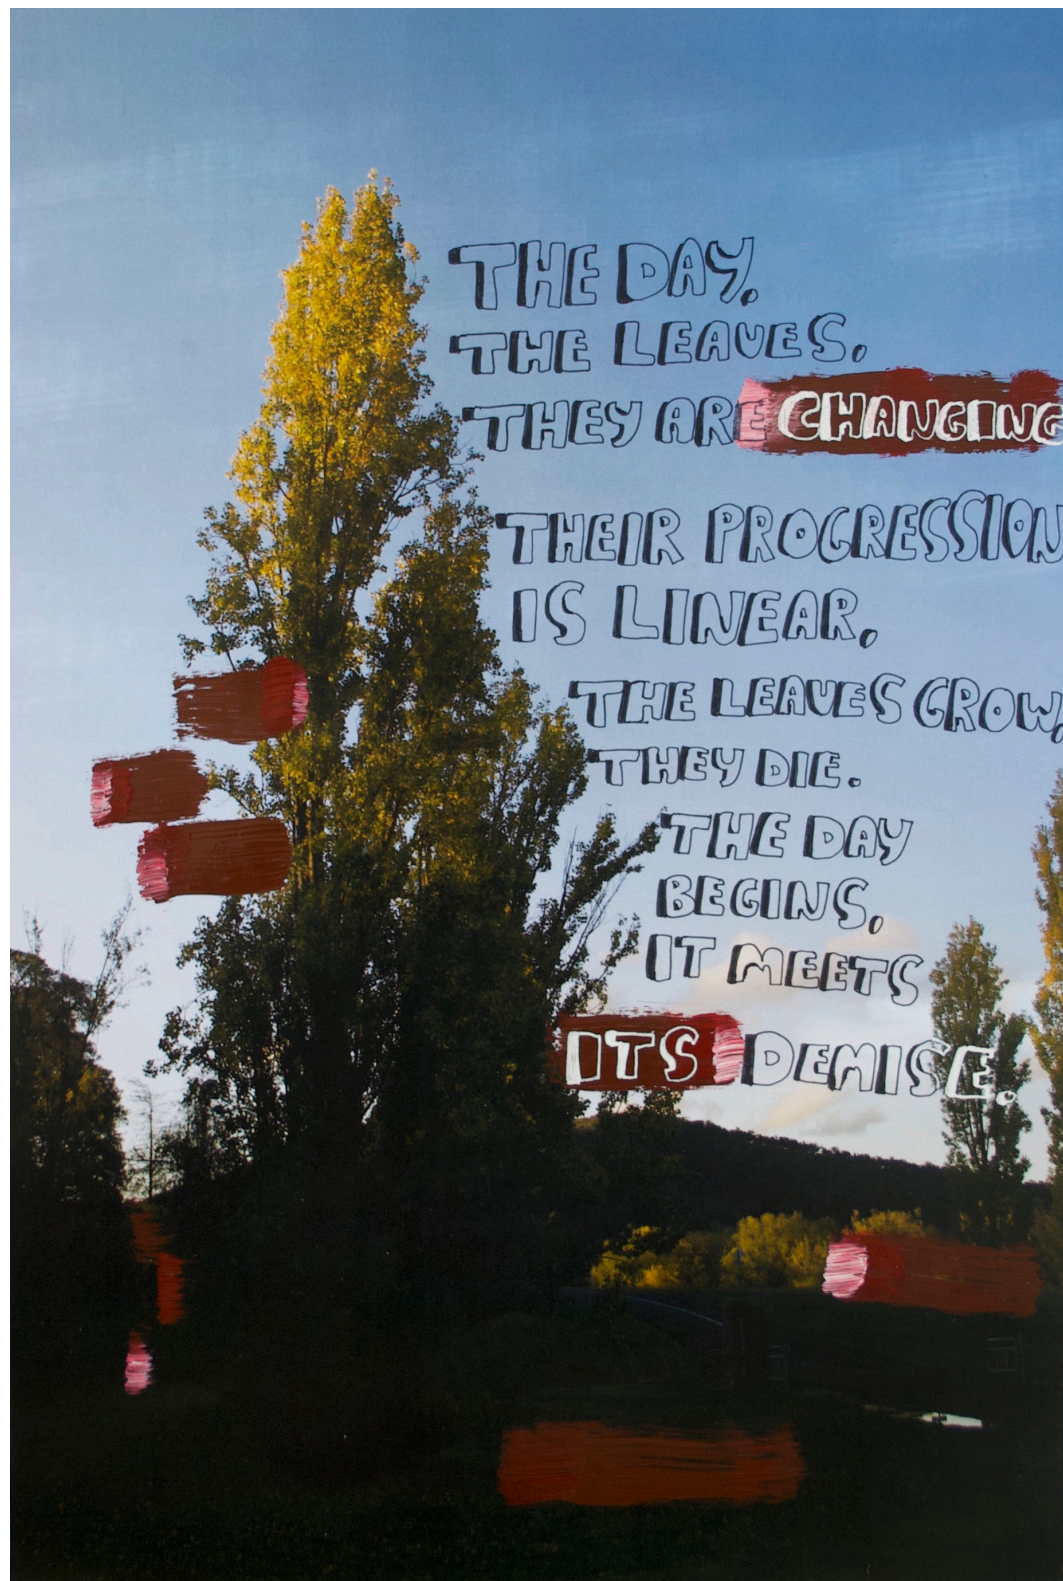 THE DAY.
THE LEAVES.
THEY ARE CHANGING
THEIR PROGRESSION
IS LINEAR.
THE LEAVES GROW,
THEY DIE.
THE DAY
BEGINS.
IT MEETS
ITS DEMISE.